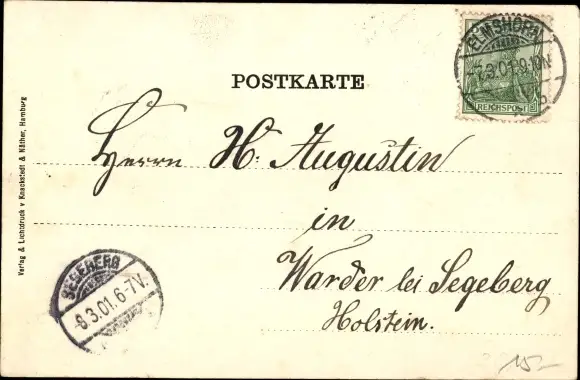 ELMSHORN
7.3.01.9-10N
REICHSPOST
POSTKARTE
Herrn H. Augustin
in
Warder bei Segeberg
Holstein.
Verlag & Lichtdruck v Knackstedt & Näther, Hamburg
SEGEBERG
-8.3.01.6-7V.
15-